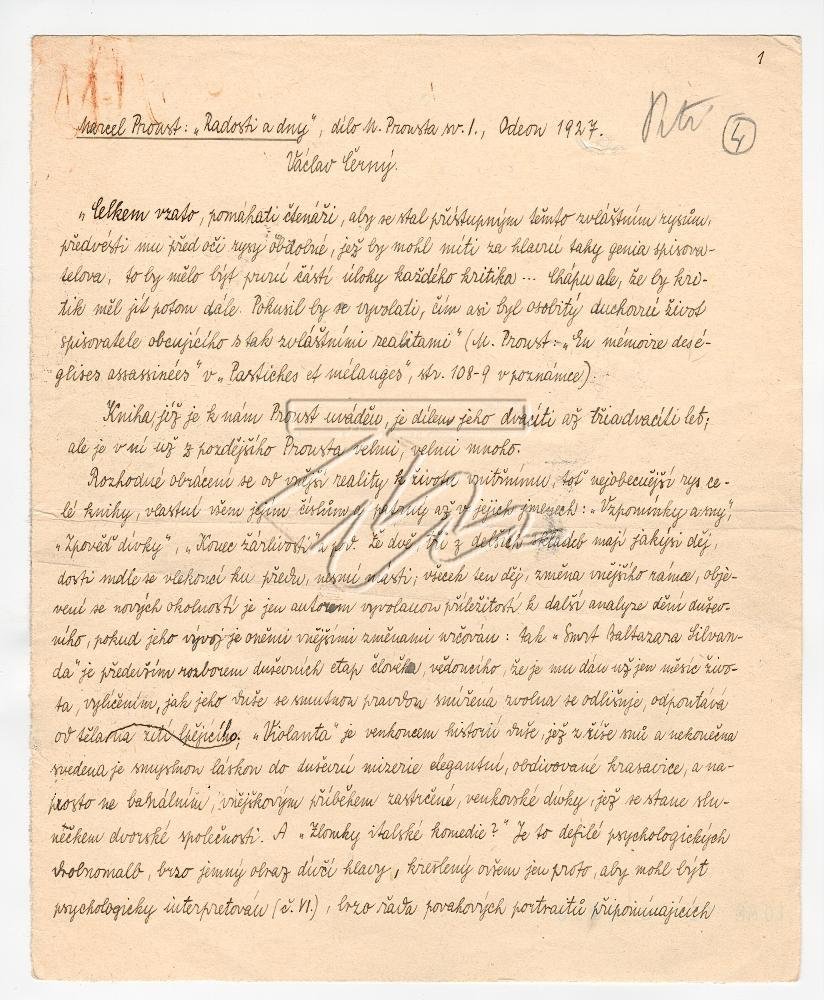 1
Marcel Proust: „Radosti a dny", dílo M. Prousta sv. I., Odeon 1927.
4
Václav Černý.
„Celkem vzato, pomáhati čtenáři, aby se stal přístupným těmto zvláštním rysům,
předvésti mu před oči rysy obdobné, jež by mohl míti za hlavní tahy genia spisova-
telova, to by mělo být první částí úlohy každého kritika... Chápu ale, že by kri-
tik měl jít potom dále. Pokusil by se vyvolati, čím asi byl osobitý duchovní život
spisovatele obcujícího s tak zvláštními realitami" (M. Proust: „En mémoire des é-
glises assassinées" v „Pastiches et mélanges", str. 108-9 v poznámce).
Kniha, jíž je k nám Proust uváděn, je dílem jeho dvaciti až třiadvaciti let;
ale je v ní už z pozdějšího Prousta velmi, velmi mnoho.
Rozhodné obrácení se od vnější reality k životu vnitřnímu, toť nejobecnější rys ce-
lé knihy, vlastní všem jejím číslům a patrný až v jejich jmenech: „Vzpomínky a sny",
„Zpověď dívky", „Konec žárlivosti" a pod. Že dvě, tři z delších skladeb mají jakýsi děj,
dosti mdle se vlekoucí ku předu, nesmí másti; všecek ten děj, změna vnějšího rámce, obje-
vení se nových okolností je jen autorem vyvolanou příležitostí k další analyse dění dušev-
ního, pokud jeho vývoj je oněmi vnějšími změnami určován: tak „Smrt Baltazara Silvan-
da" je především rozborem duševních etap člověka, vědoucího, že je mu dán už jen měsíc živo-
ta, vylíčením, jak jeho duše se smutnou pravdou smířená zvolna se odlišuje, odpoutává
od těla na žití lpějícího; „Violanta" je venkoncem historií duše, jež z říše snů a nekonečna
svedena je smyslnou láskou do duševní mizerie elegantní, obdivované krasavice, a na-
prosto ne banálním, vnějškovým příběhem zastrčené, venkovské dívky, jež se stane slu-
néčkem dvorské společnosti. A „Zlomky italské komedie?" Je to defilé psychologických
drobnomaleb, brzo jemný obraz dívčí hlavy, kreslený ovšem jen proto, aby mohl být
psychologicky interpretován (č. VI.), brzo řada povahových portraitů připomínajících